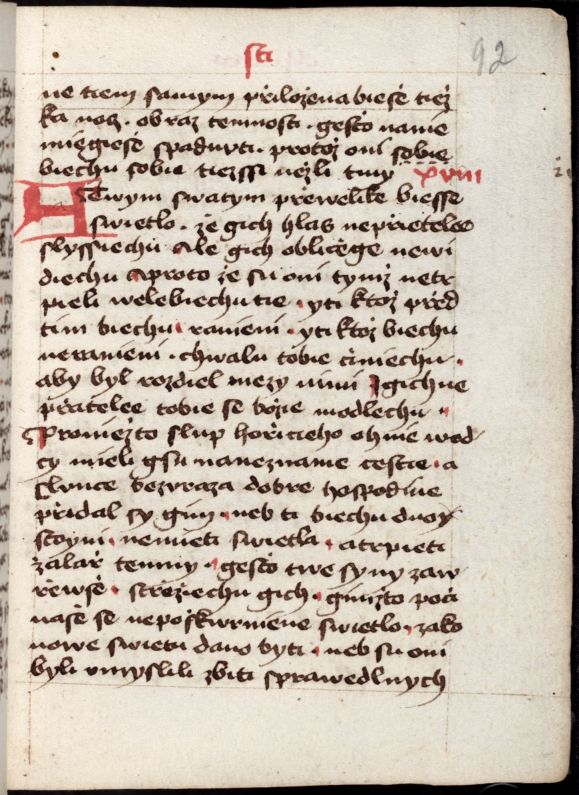 sti
92
ne tiem samym přiložena bieše tiež
ka noc · obraz temnosti · gešto na nie
miegieše spadnuti · protož oni sobie
biechu sobie tiezssi nežli tmy xviii
A Twym swatym převelike biesse
swietlo · že gich hlas neprietelee
slyssiechu ale gich obličege newi
diechu a proto že su oni tymž netr
pieli welebiechu tie · yti ktož před
tim biechu ranieni · yti ktož biechu
neranieni · chwalu tobie činiechu ·
aby byl rozdiel mezy nimi y gichne
přatelee tobie se bozie modlechu
Proniežto slup hořicieho ohnie wod
cy mieli gsu na neznamee cestie · a
slunce bezuraza dobre hospodine
přidal sy gim · neb ti biechu duo
stoyni · nemieti swietla · a trpieti
žalař temny · gešto twe syny zaw
řewše · střeziechu gich · gimižto poči
naše se nepoškwrniene swietlo · zako
nowe swietu dano byti · neb su oni
byli vmyslili zbiti sprawedlnych